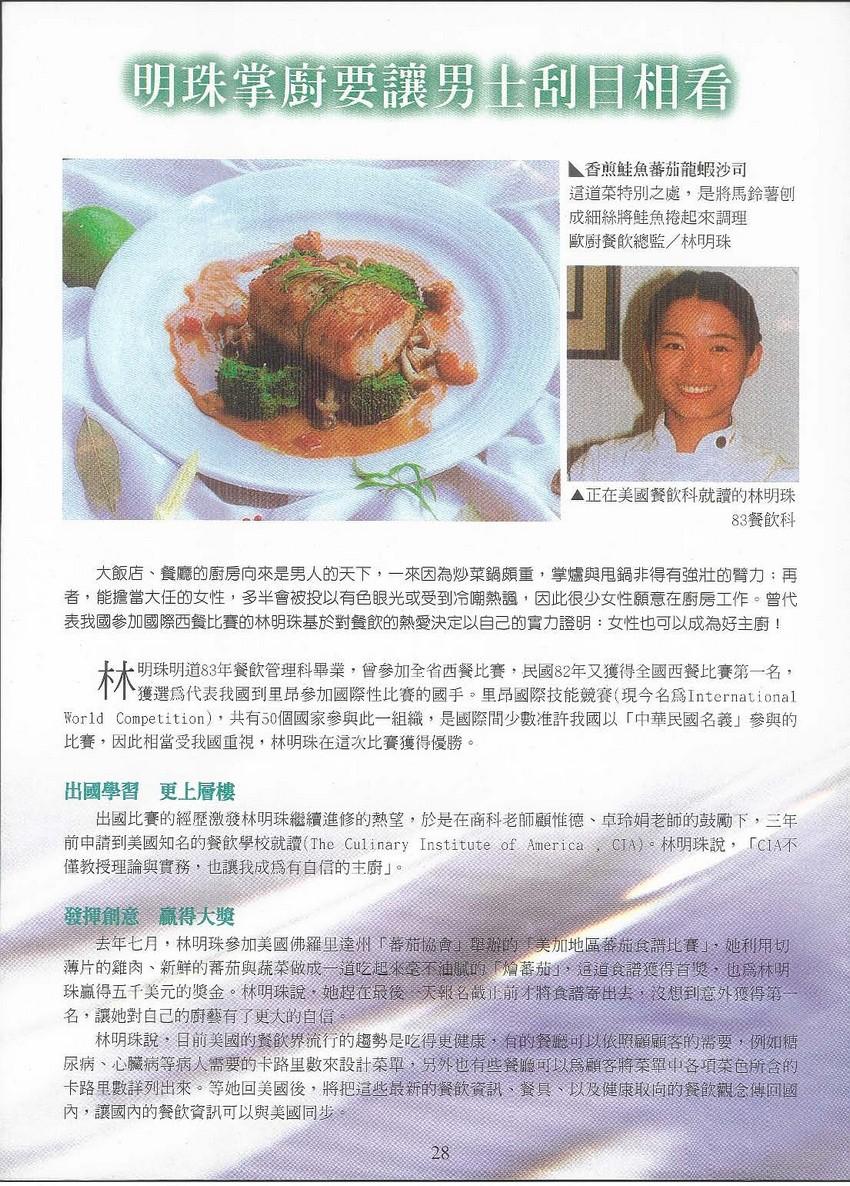 明珠掌廚要讓男士刮目相看
◣香煎鮭魚蕃茄龍蝦沙司
這道菜特別之處，是將馬鈴薯刨
成細絲將鮭魚捲起來調理
歐廚餐飲總監／林明珠
▲正在美國餐飲科就讀的林明珠
83餐飲科
大飯店、餐廳的廚房向來是男人的天下，一來因為炒菜鍋頗重，掌爐與甩鍋非得有強壯的臂力；再
者，能擔當大任的女性，多半會被投以有色眼光或受到冷嘲熱諷，因此很少女性願意在廚房工作。曾代
表我國參加國際西餐比賽的林明珠基於對餐飲的熱愛決定以自己的實力證明：女性也可以成為好主廚！
林明珠明道83年餐飲管理科畢業，曾參加全省西餐比賽，民國82年又獲得全國西餐比賽第一名，
獲選爲代表我國到里昂參加國際性比賽的國手。里昂國際技能競賽(現今名爲International
World Competition)，共有50個國家參與此一組織，是國際間少數准許我國以「中華民國名義」參與的
比賽，因此相當受我國重視，林明珠在這次比賽獲得優勝。
出國學習　更上層樓
出國比賽的經歷激發林明珠繼續進修的熱望，於是在商科老師顧惟德、卓玲娟老師的鼓勵下，三年
前申請到美國知名的餐飲學校就讀(The Culinary Institute of America , CIA)。林明珠說，「CIA不
僅教授理論與實務，也讓我成爲有自信的主廚」。
發揮創意　贏得大獎
去年七月，林明珠參加美國佛羅里達州「蕃茄協會」舉辦的「美加地區蕃茄食譜比賽」，她利用切
薄片的雞肉、新鮮的蕃茄與蔬菜做成一道吃起來毫不油膩的「燴蕃茄」，這道食譜獲得首獎，也爲林明
珠贏得五千美元的獎金。林明珠說，她趕在最後一天報名截止前才將食譜寄出去，沒想到意外獲得第一
名，讓她對自己的廚藝有了更大的自信。
林明珠說，目前美國的餐飲界流行的趨勢是吃得更健康，有的餐廳可以依照顧顧客的需要，例如糖
尿病、心臟病等病人需要的卡路里數來設計菜單，另外也有些餐廳可以爲顧客將菜單中各項菜色所含的
卡路里數詳列出來。等她回美國後，將把這些最新的餐飲資訊、餐具、以及健康取向的餐飲觀念傳回國
內，讓國內的餐飲資訊可以與美國同步。
28